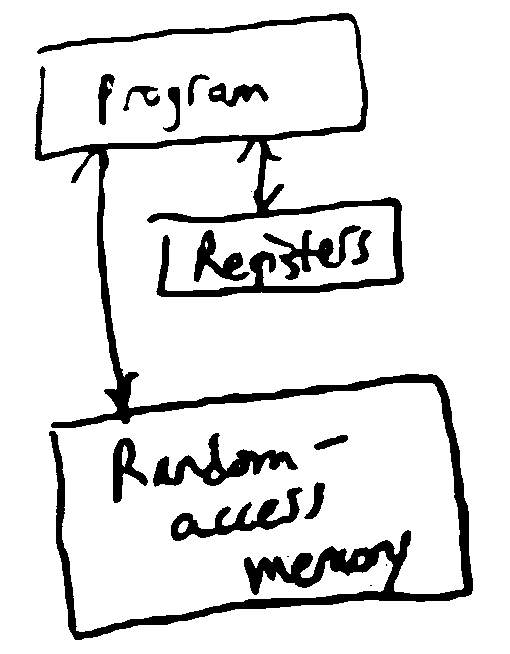 Program
Registers
Random-
access
memory